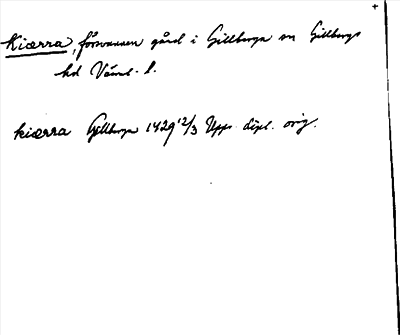 +
Kiærra, försvunnen gård i Gillberga sn Gillbergs
hd Värml. l.
kiærra Gillberga 1429 12/3 Upps. dipl. orig.